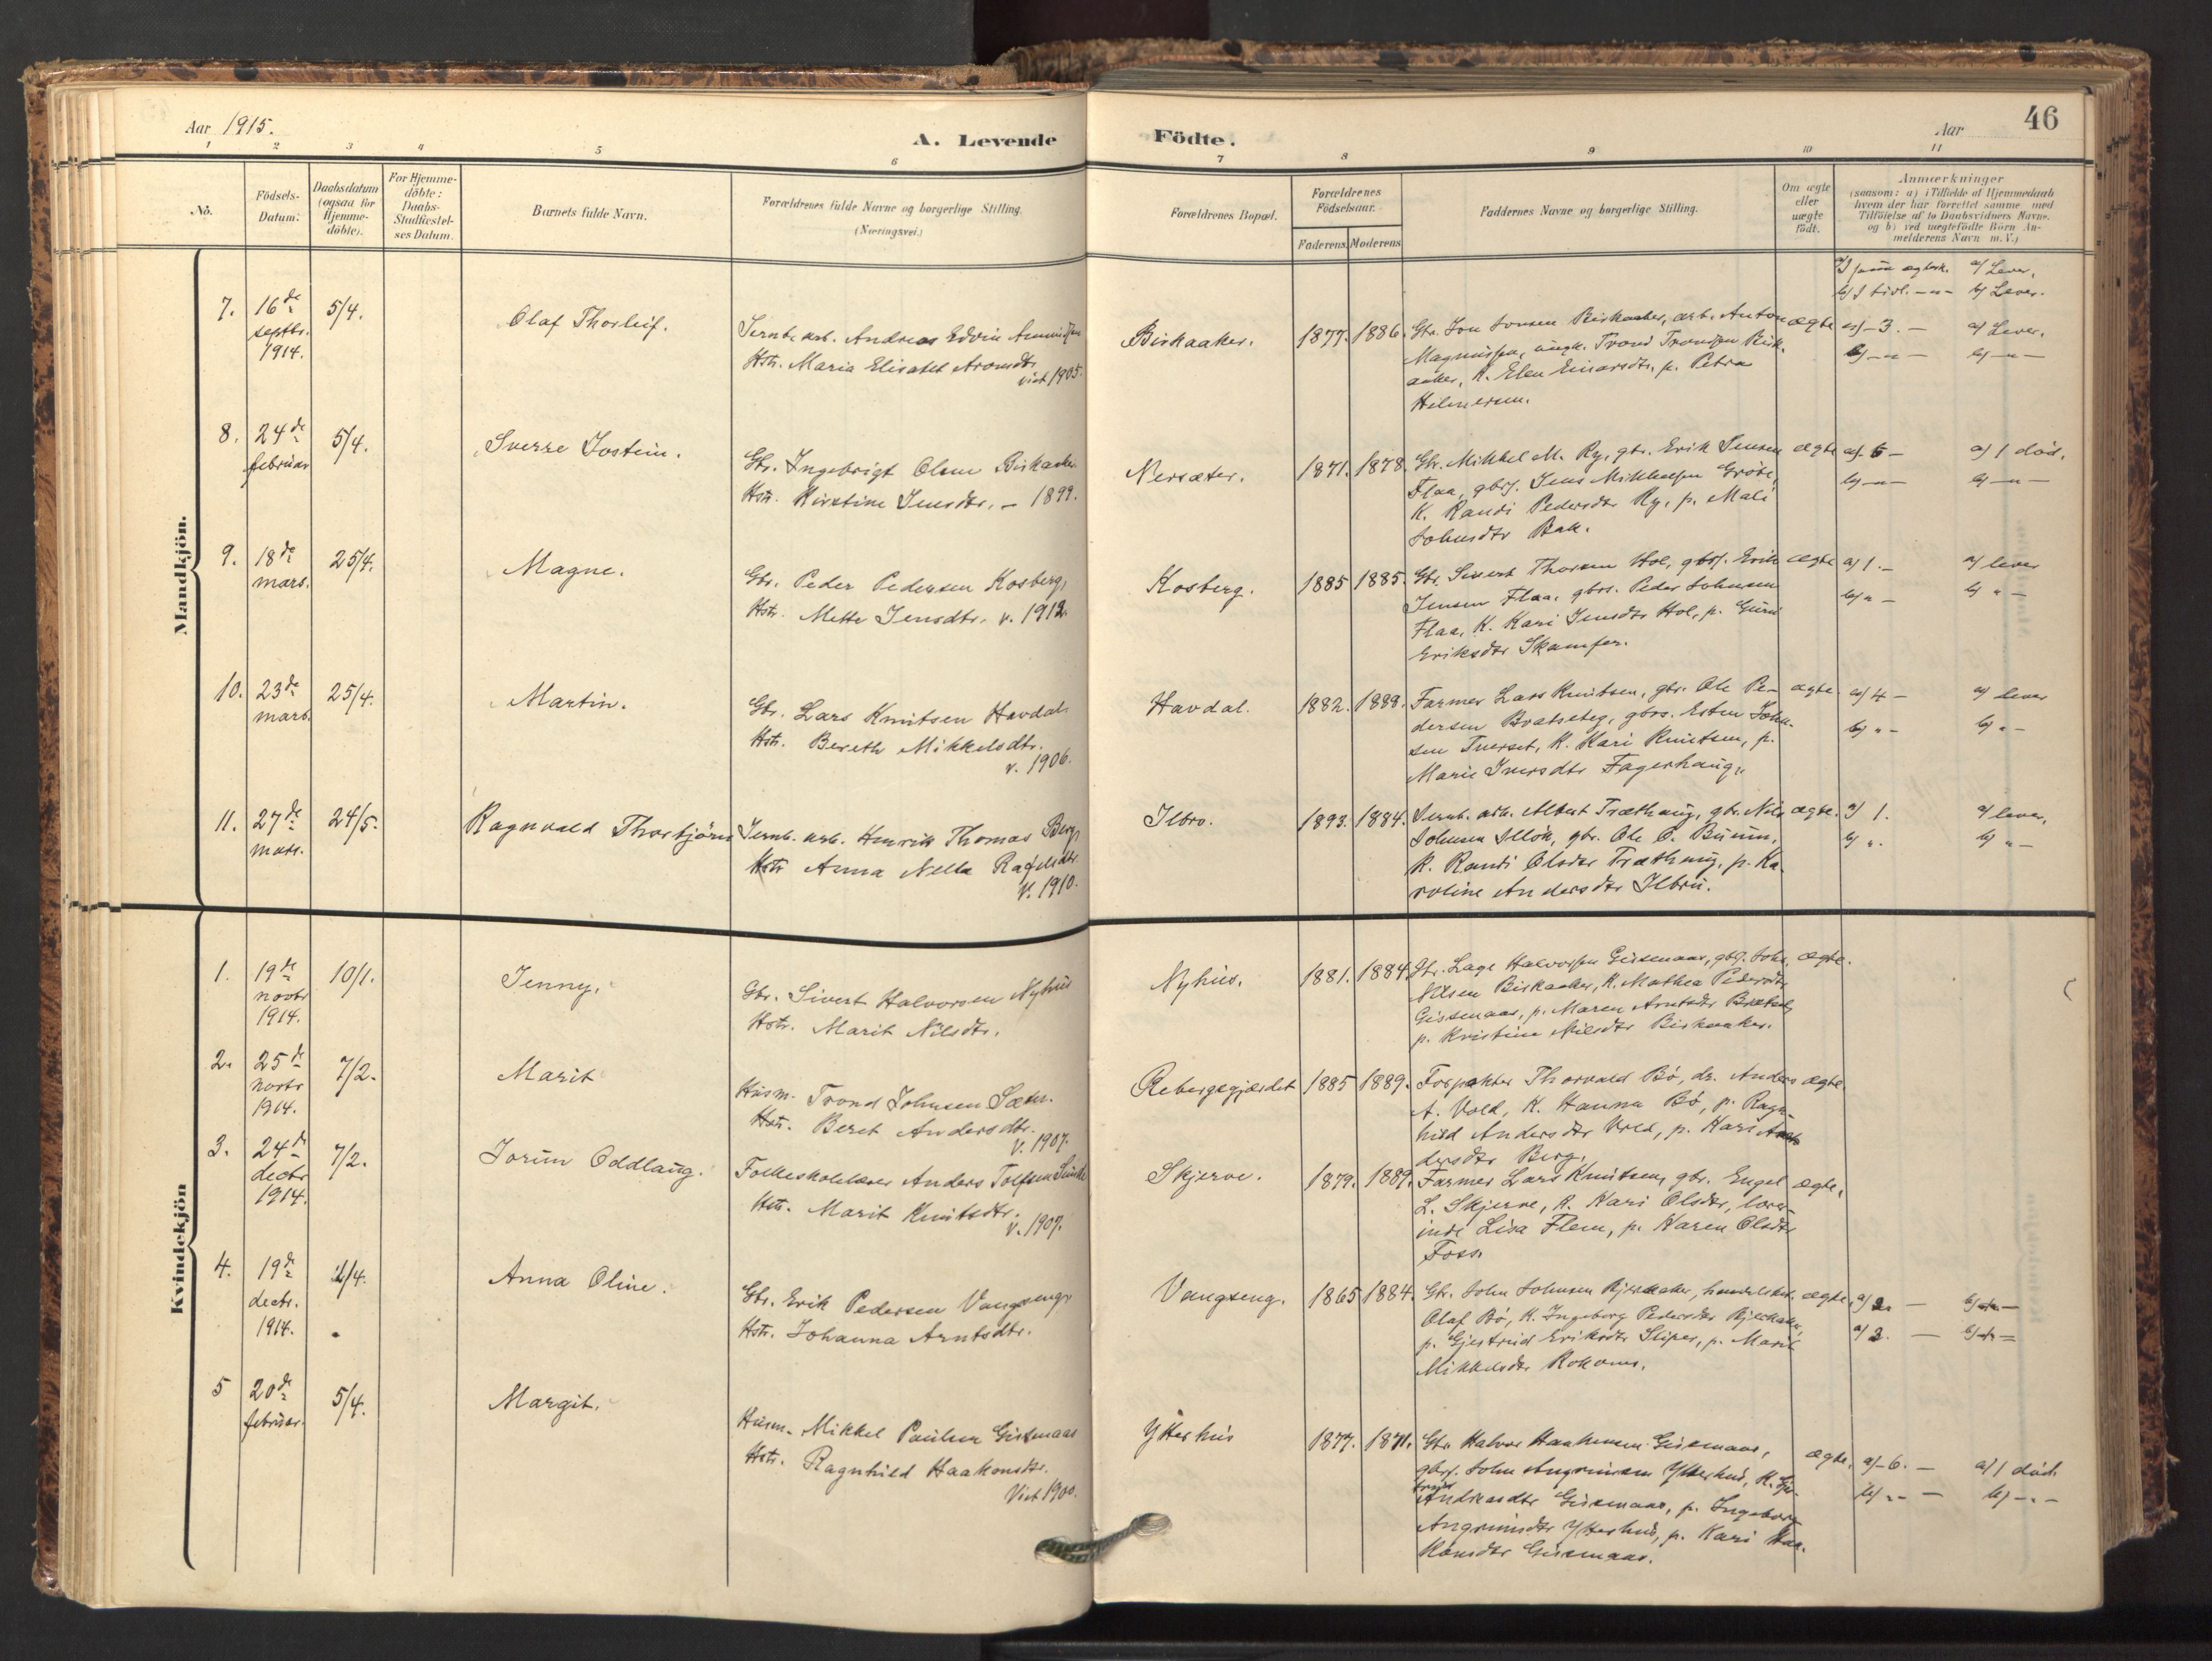 Aar 1915.
A. Levende Födte.
Aar
46
1 2 3 4 5 6 7 8 9 10 11
No.
Födsels-
Datum.
Daabsdatum
(ogsaa for
Hjemme-
döbte).
For Hjemme-
döbte:
Daabs-
Stadfæstel-
ses Datum.
Barnets fulde Navn.
Forældrenes fulde Navne og borgerlige Stilling.
(Næringsvei.)
Forældrenes Bopæl.
Forældrenes
Födselsaar.
Faderens. Moderens
Faddernes Navne og borgerlige Stilling.
Om ægte
eller
uægte
födt.
Anmærkninger
(saasom: a) i Tilfælde af Hjemmedaab
hvem der har forrettet samme med
Tilföielse af to Daabsvidners Navne.
og b) ved uægtefödte Börn An-
melderens Navn m. V.)
Mandkjön.
a/ Lever.
b/ Lever.
7.
16de
septbr.
1914.
5/4.
Olaf Thorleif.
Jernb. arb. Andreas Edvin
Hstr. Maria Elisabet
viet 1905.
Birkaaker.
1877. 1886.
Gbr. Jon Jonsen Birkaaker, arb. Anton
Magnussen, ungk. Trond Trondsen Birk-
aaker, K. Elen Einarsdtr, p. Petra
ægte
a/ 3. –
b/ – " –
a/ Lever.
b/ – " –
8.
24de
februar
5/4.
Sverre Jostein.
Gbr. Ingebrigt Olsen Birkaaker
Hstr. Kirstine Jensdtr. – 1899.
Nersæter.
1871. 1878.
Gbr. Mikkel M. Ry, gbr. Erik Jensen
Flaa, gbrs. Jens Mikkelsen
K. Randi Pedersdtr Ry, p. Mali
Johnsdtr Bak.
ægte
a/ 5 –
b/ – " –
a/ 1 död.
b/ – " –
9.
18de
mars.
25/4.
Magne.
Gbr. Peder Pedersen Kosberg,
Hstr. Mette Jensdtr. v. 1912.
Kosberg.
1885 1885.
Gbr. Sivert Thorsen Hol, gbrs. Erik
Jensen Flaa, gbrs. Peder Johnsen
Flaa, K. Kari Jensdtr Hol, p. Guri
Eriksdtr Skamfer.
ægte
a/ 1. –
b/ " –
a/ lever
b/ " –
10.
23de
mars.
25/4.
Martin.
Gbr. Lars Knutsen Havdal
Hstr. Bereth Mikkelsdtr.
v. 1906.
Havdal.
1882. 1888.
Farmer Lars Knutsen, gbr. Ole Pe-
dersen gbrs. Esten John-
sen Tverset, K. Kari Knutsen, p.
Marie Iversdtr Fagerhaug.
ægte.
a/ 4 –
b/ " –
a/ lever
b/ " –
11.
27de
mars.
24/5.
Ragnvald Thorbjörn
Jernb. arb. Henrik Thomas Berg,
Hstr Anna Nella
v. 1910.
Ilbro.
1893. 1884.
Jernb. arb. Albert Træthaug, gbr. Nils
Johnsen gbr. Ole O.
K. Randi Olsdtr Træthaug, p. Ka-
roline Andersdtr Ilbru.
ægte.
a/ 1.
b/ ".
a/ lever,
b/ " –
Kvindekjön
1.
19de
novbr
1914.
10/1.
Jenny.
Gbr. Sivert Halvorsen Nyhus
Hstr. Marit Nilsdtr.
Nyhus.
1881. 1884.
Gbr. Lage Halvorsen Gisemaas, gbrs. John
Nilsen Birkaaker, K. Mathea Pedersdtr
Gisemaas, p. Maren Arntsdtr
p. Kristine Nilsdtr Birkaaker.
ægte.
2.
25de
novbr
1914.
7/2.
Marit
Husm. Trond Johnsen Sæter.
Hstr. Beret Andersdtr.
v. 1907.
Rebergsgjærdet
1885 1889.
Forpakter Thorvald Bö, dr. Anders
A. Vold, K. Hanna Bö, p. Ragn-
hild Andersdtr Vold, p. Kari An-
dersdtr Berg.
ægte
3.
24de
decbr
1914.
7/2.
Jorun Oddlaug.
Folkeskolelærer Anders Tolfsen
Hstr. Marit Knutsdtr.
v. 1907.
Skjerve.
1879. 1889.
Farmer Lars Knutsen, gbr. Engel
L. Skjerve, K. Kari Olsdtr, lærer-
inde Lisa Flem, p. Karen Olsdtr
Foss.
ægte.
4.
19de
decbr.
1914.
4/4.
Anna Oline.
Gbr. Erik Pedersen Vangseng
Hstr. Johanna Arntsdtr.
Vangseng.
1865 1884.
Gbr. John Johnsen
Olaf Bö, K. Ingeborg Pedersdtr
p. Gjertrud Eriksdtr Sliper, p. Marit
Mikkelsdtr
ægte,
a/ 2. –
a/ 2. –
5
20de
februar.
5/4.
Margit.
Husm. Mikkel Paulsen Gisemaas
Hstr. Ragnhild Haakonsdtr.
Viet 1900.
Ytterhus
1877. 1871.
Gbr. Halvor Haakonsen Gisemaas,
gbrs. John Angrimsen Ytterhus, K. Gje-
trud
Andreasdtr Gisemaas, p. Ingeborg
Angrimsdtr Ytterhus, p. Kari Haa-
konsdtr Gisemaas.
ægte,
a/ 6. –
b/ " –
a/ 1 död.
b/ – " –